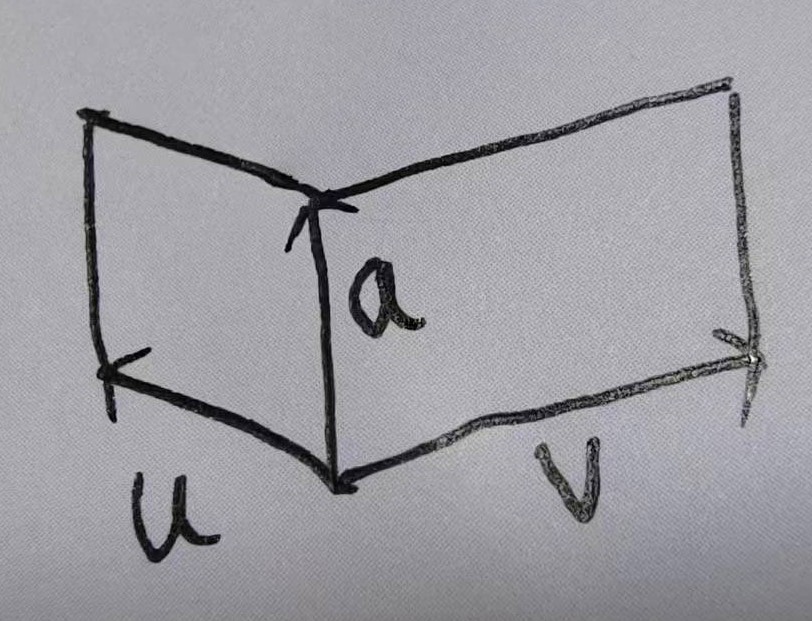 a
u
v